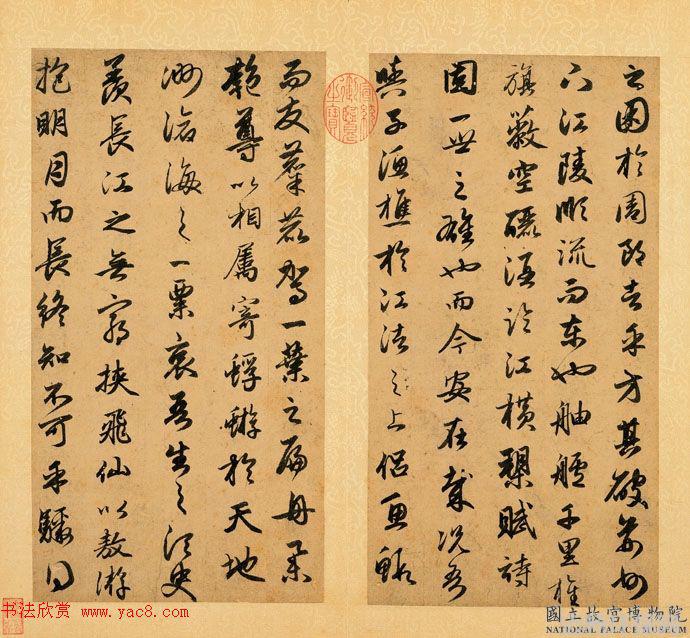 之困於周郎者乎方其破荊州
下江陵順流而東也舳艫千里旌
旗蔽空釃酒臨江橫槊賦詩
固一世之雄也而今安在哉況吾
與子漁樵於江渚之上侶魚蝦
而友麋鹿駕一葉之扁舟舉
匏尊以相屬寄蜉蝣於天地
渺滄海之一粟哀吾生之須臾
羨長江之無窮挾飛仙以敖游
抱明月而長終知不可乎驟得
书法欣赏 www.yac8.com
國立故宮博物院
NATIONAL PALACE MUSEUM